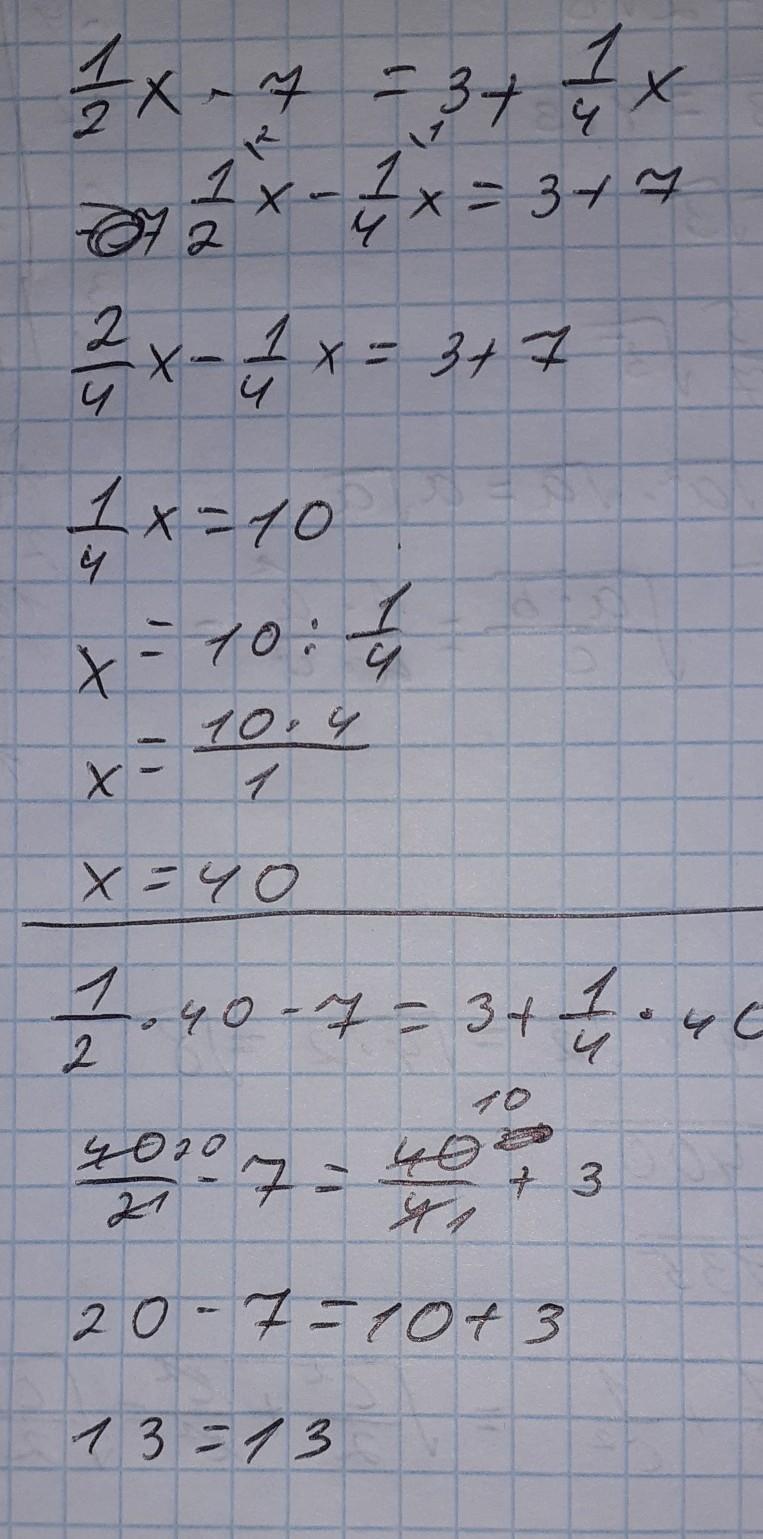 1/2 x - 7 = 3 + 1/4 x
1/2 \2 x - 1/4 \1 x = 3 + 7
2/4 x - 1/4 x = 3 + 7
1/4 x = 10
x = 10 : 1/4
x = 10 · 4 / 1
x = 40
1/2 · 40 - 7 = 3 + 1/4 · 40
40 20 / 2 1 - 7 = 40 10 / 4 1 + 3
20 - 7 = 10 + 3
13 = 13